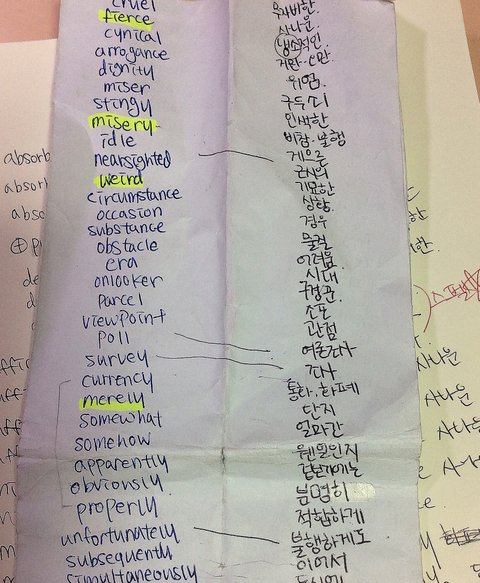 cruel 무자비한.
fierce 사나운
cynical 냉소적인.
arrogance 거만·오만.
dignity 위엄.
miser 구두쇠
stingy 인색한
misery 비참·불행
idle 게으른
nearsighted 근시의
weird 기묘한
circumstance 상황.
occasion 경우
substance 물질
obstacle 어려움.
era 시대
onlooker 구경꾼.
parcel 소포
viewpoint 관점
poll 여론조사
survey 조사
currency 통화, 화폐
merely 단지
somewhat 얼마간
somehow 웬일인지
apparently 겉보기에는
obviously 분명히
properly 적합하게
unfortunately 불행하게도
subsequently 이어서
simultaneously
absorb
사나운
사나운